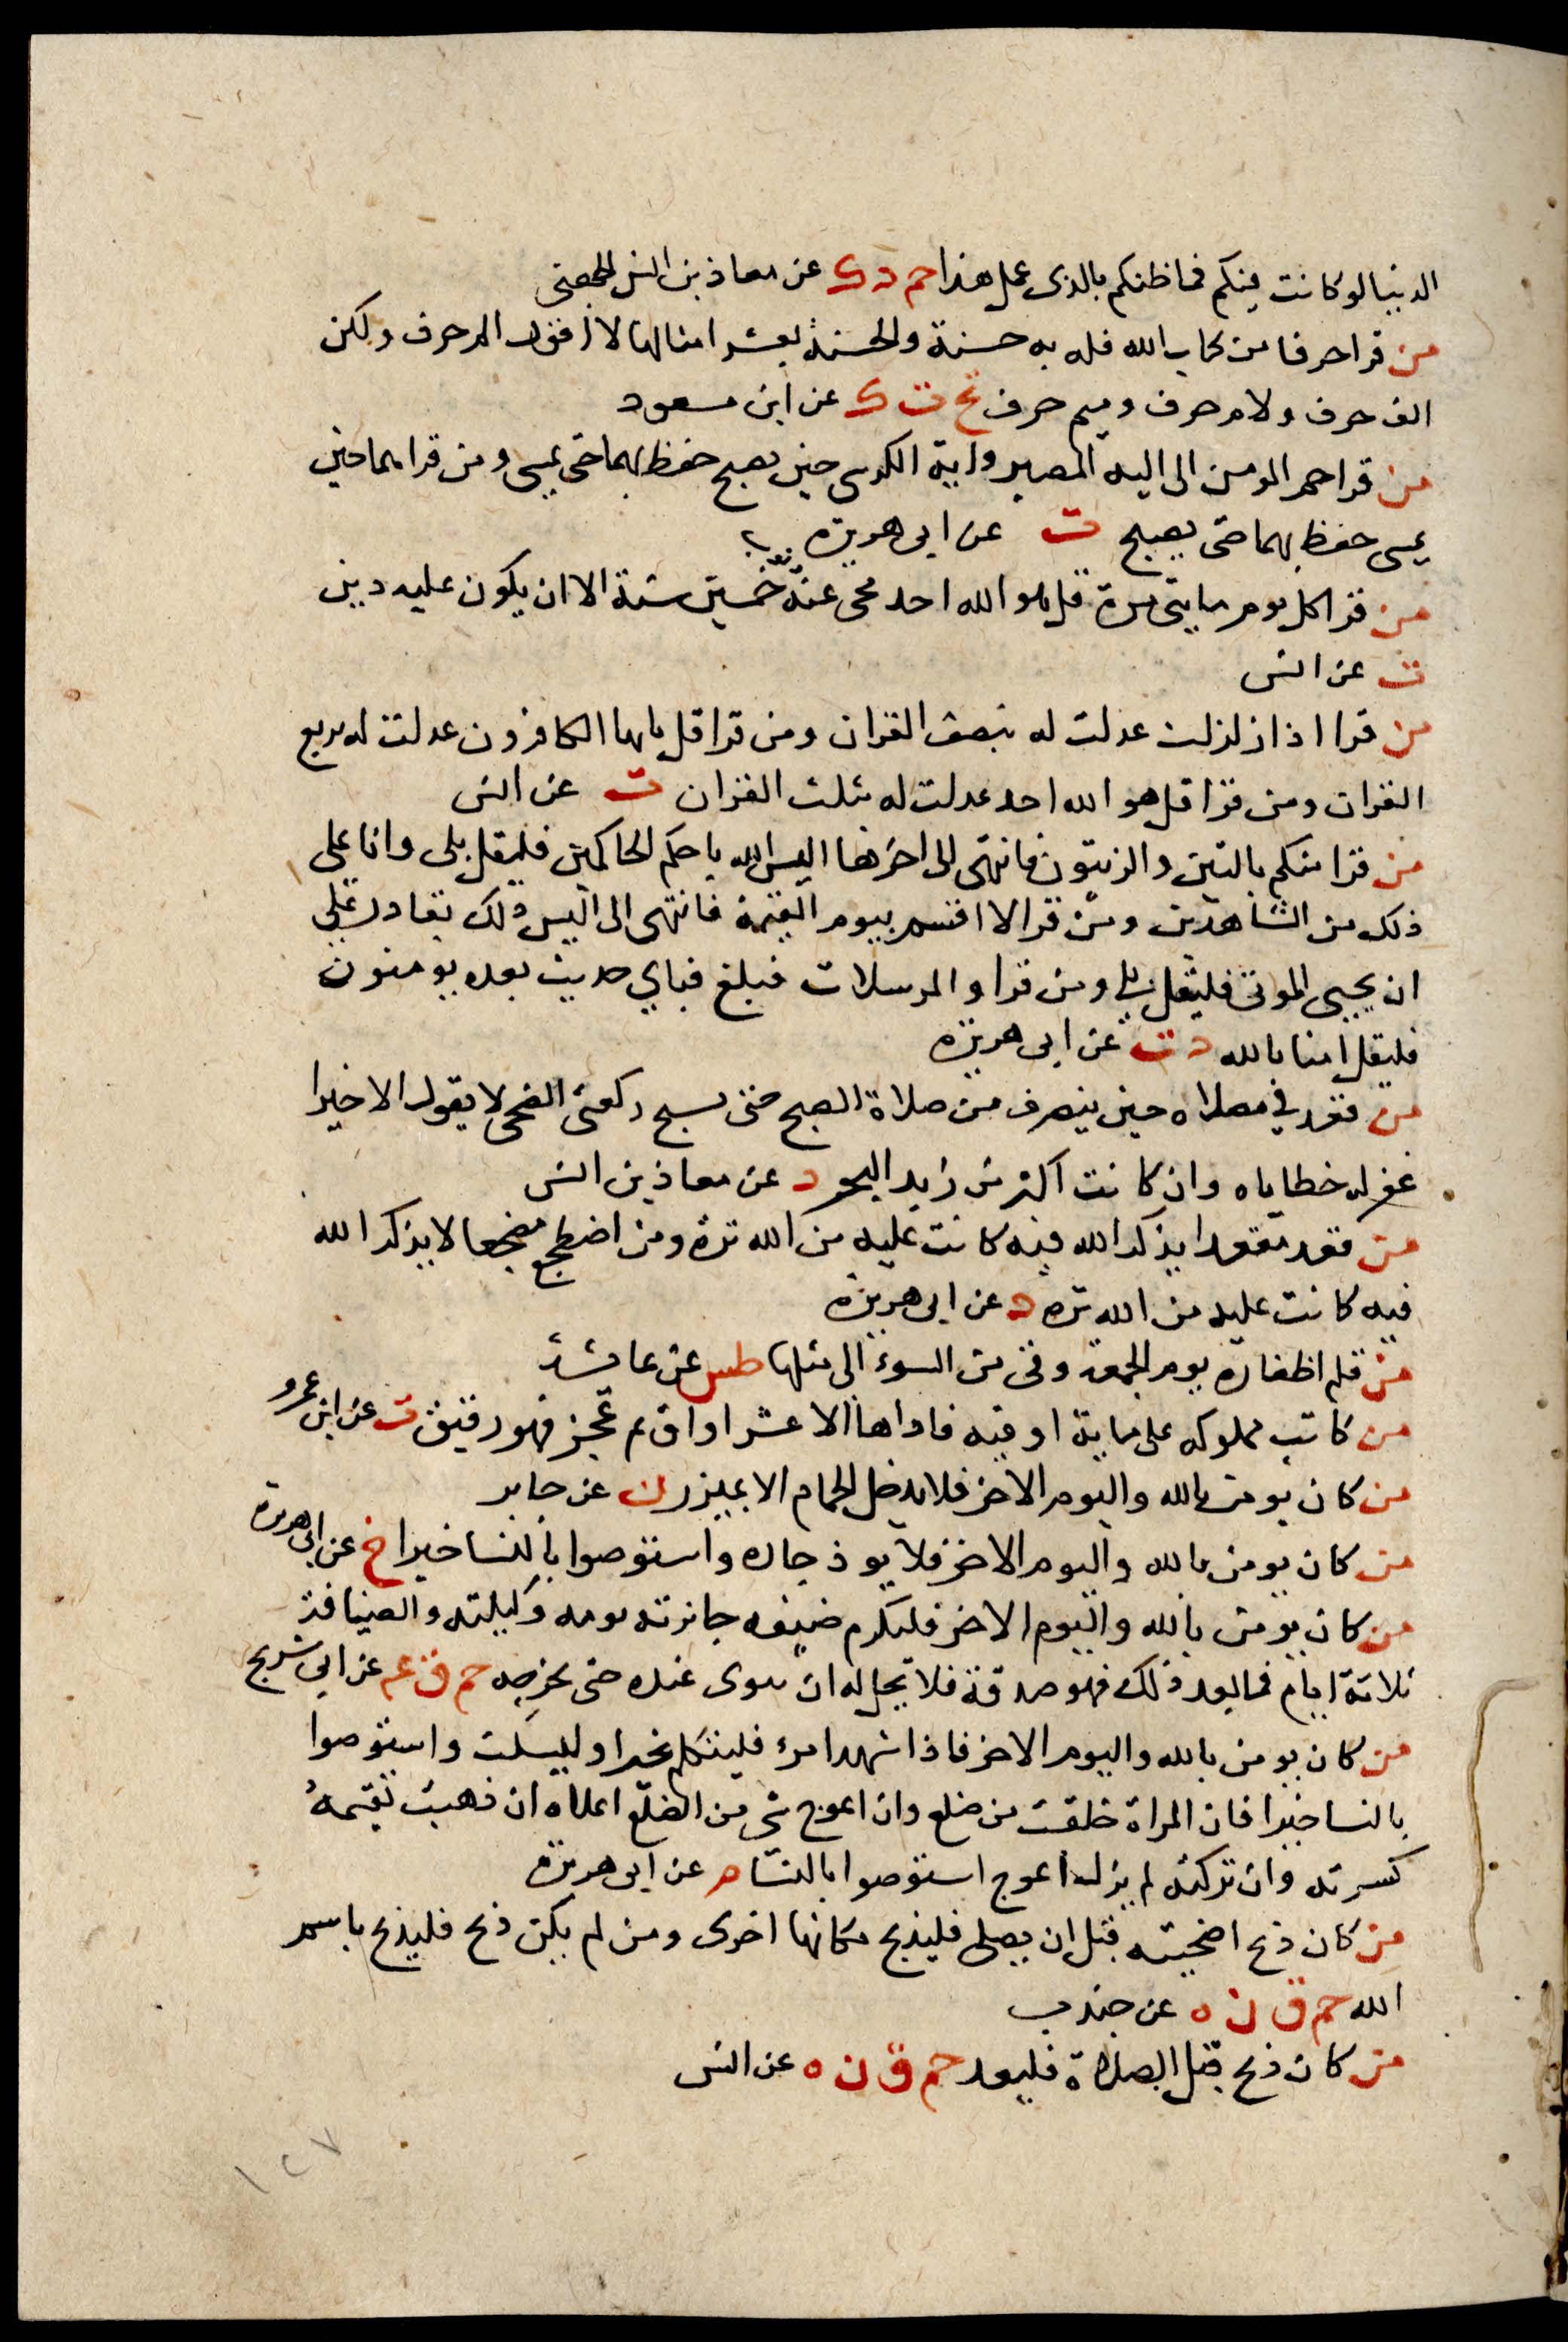 الدنيا لو كانت فيكم فما ظنكم بالذى عمل هذا حم د ك عن معاذ بن انس الجهنى
من قرا حرفا من كتاب الله فله به حسنة والحسنة بعشر امثالها لا اقول الم حرف ولكن
الف حرف ولام حرف وميم حرف تخ ت ك عن ابن مسعود
من قرا حم المومن الى اليه المصير واية الكرسى حين يصبح حفظ بهما حتى يمسى ومن قراهما حين
يمسى حفظ بهما حتى يصبح ت عن ابى هريرة
من قرا كل يوم مايتى مرة قل هو الله احد محى عنه ذنوب خمسين سنة الا ان يكون عليه دين
ت عن انس
من قرا اذا زلزلت عدلت له بنصف القران ومن قرا قل يايها الكافرون عدلت له بربع
القران ومن قرا قل هو الله احد عدلت له بثلث القران ت عن انس
من قرا منكم بالتين والزيتون فانتهى الى اخرها اليس الله باحكم الحاكمين فليقل بلى وانا على
ذلك من الشاهدين ومن قرا لا اقسم بيوم القيمة فانتهى الى اليس ذلك بقادر على
ان يحيى الموتى فليقل بلى ومن قرا والمرسلات فبلغ فباي حديث بعده يومنون
فليقل امنا بالله د ت عن ابى هريرة
من قعد في مصلاه حين ينصرف من صلاة الصبح حتى يسبح ركعتى الضحى لا يقول الا خيرا
غفر له خطاياه وان كانت اكثر من زبد البحر د عن معاذ بن انس
من قعد مقعدا لا يذكر الله فيه كانت عليه من الله ترة ومن اضطجع مضجعا لا يذكر الله
فيه كانت عليه من الله ترة د عن ابى هريرة
من قلم اظفاره يوم الجمعة وقى من السوء الى مثلها طس عن عائشة
من كاتب مملوكه على ماية اوقيه فاداها الا عشر اواق ثم عجز فهو رقيق ت عن ابن عمرو
من كان يومن بالله واليوم الاخر فلا يدخل الحمام الا بميزر ن عن جابر
من كان يومن بالله واليوم الاخر فلا يوذ جاره واستوصوا بالنسا خيرا خ عن ابى هريرة
من كان يومن بالله واليوم الاخر فليكرم ضيفه جائزته يومه وليلته والضيافة
ثلاثة ايام فما بعد ذلك فهو صدقة فلا يحل له ان يثوى عنده حتى يحرجه حم ق عم عن ابى شريح
من كان يومن بالله واليوم الاخر فاذا شهد امرء فليتكلم بخير او ليسكت واستوصوا
بالنسا خيرا فان المراة خلقت من ضلع وان اعوج شى من الضلع اعلاه ان ذهبت تقيمه
كسرته وان تركته لم يزل اعوج استوصوا بالنسا م عن ابى هريرة
من كان ذبح اضحيته قبل ان يصلى فليذبح مكانها اخرى ومن لم يكن ذبح فليذبح باسم
الله حم ق ن ه عن جندب
من كان ذبح قبل الصلاة فليعد حم ق ن ه عن انس
١٢٧